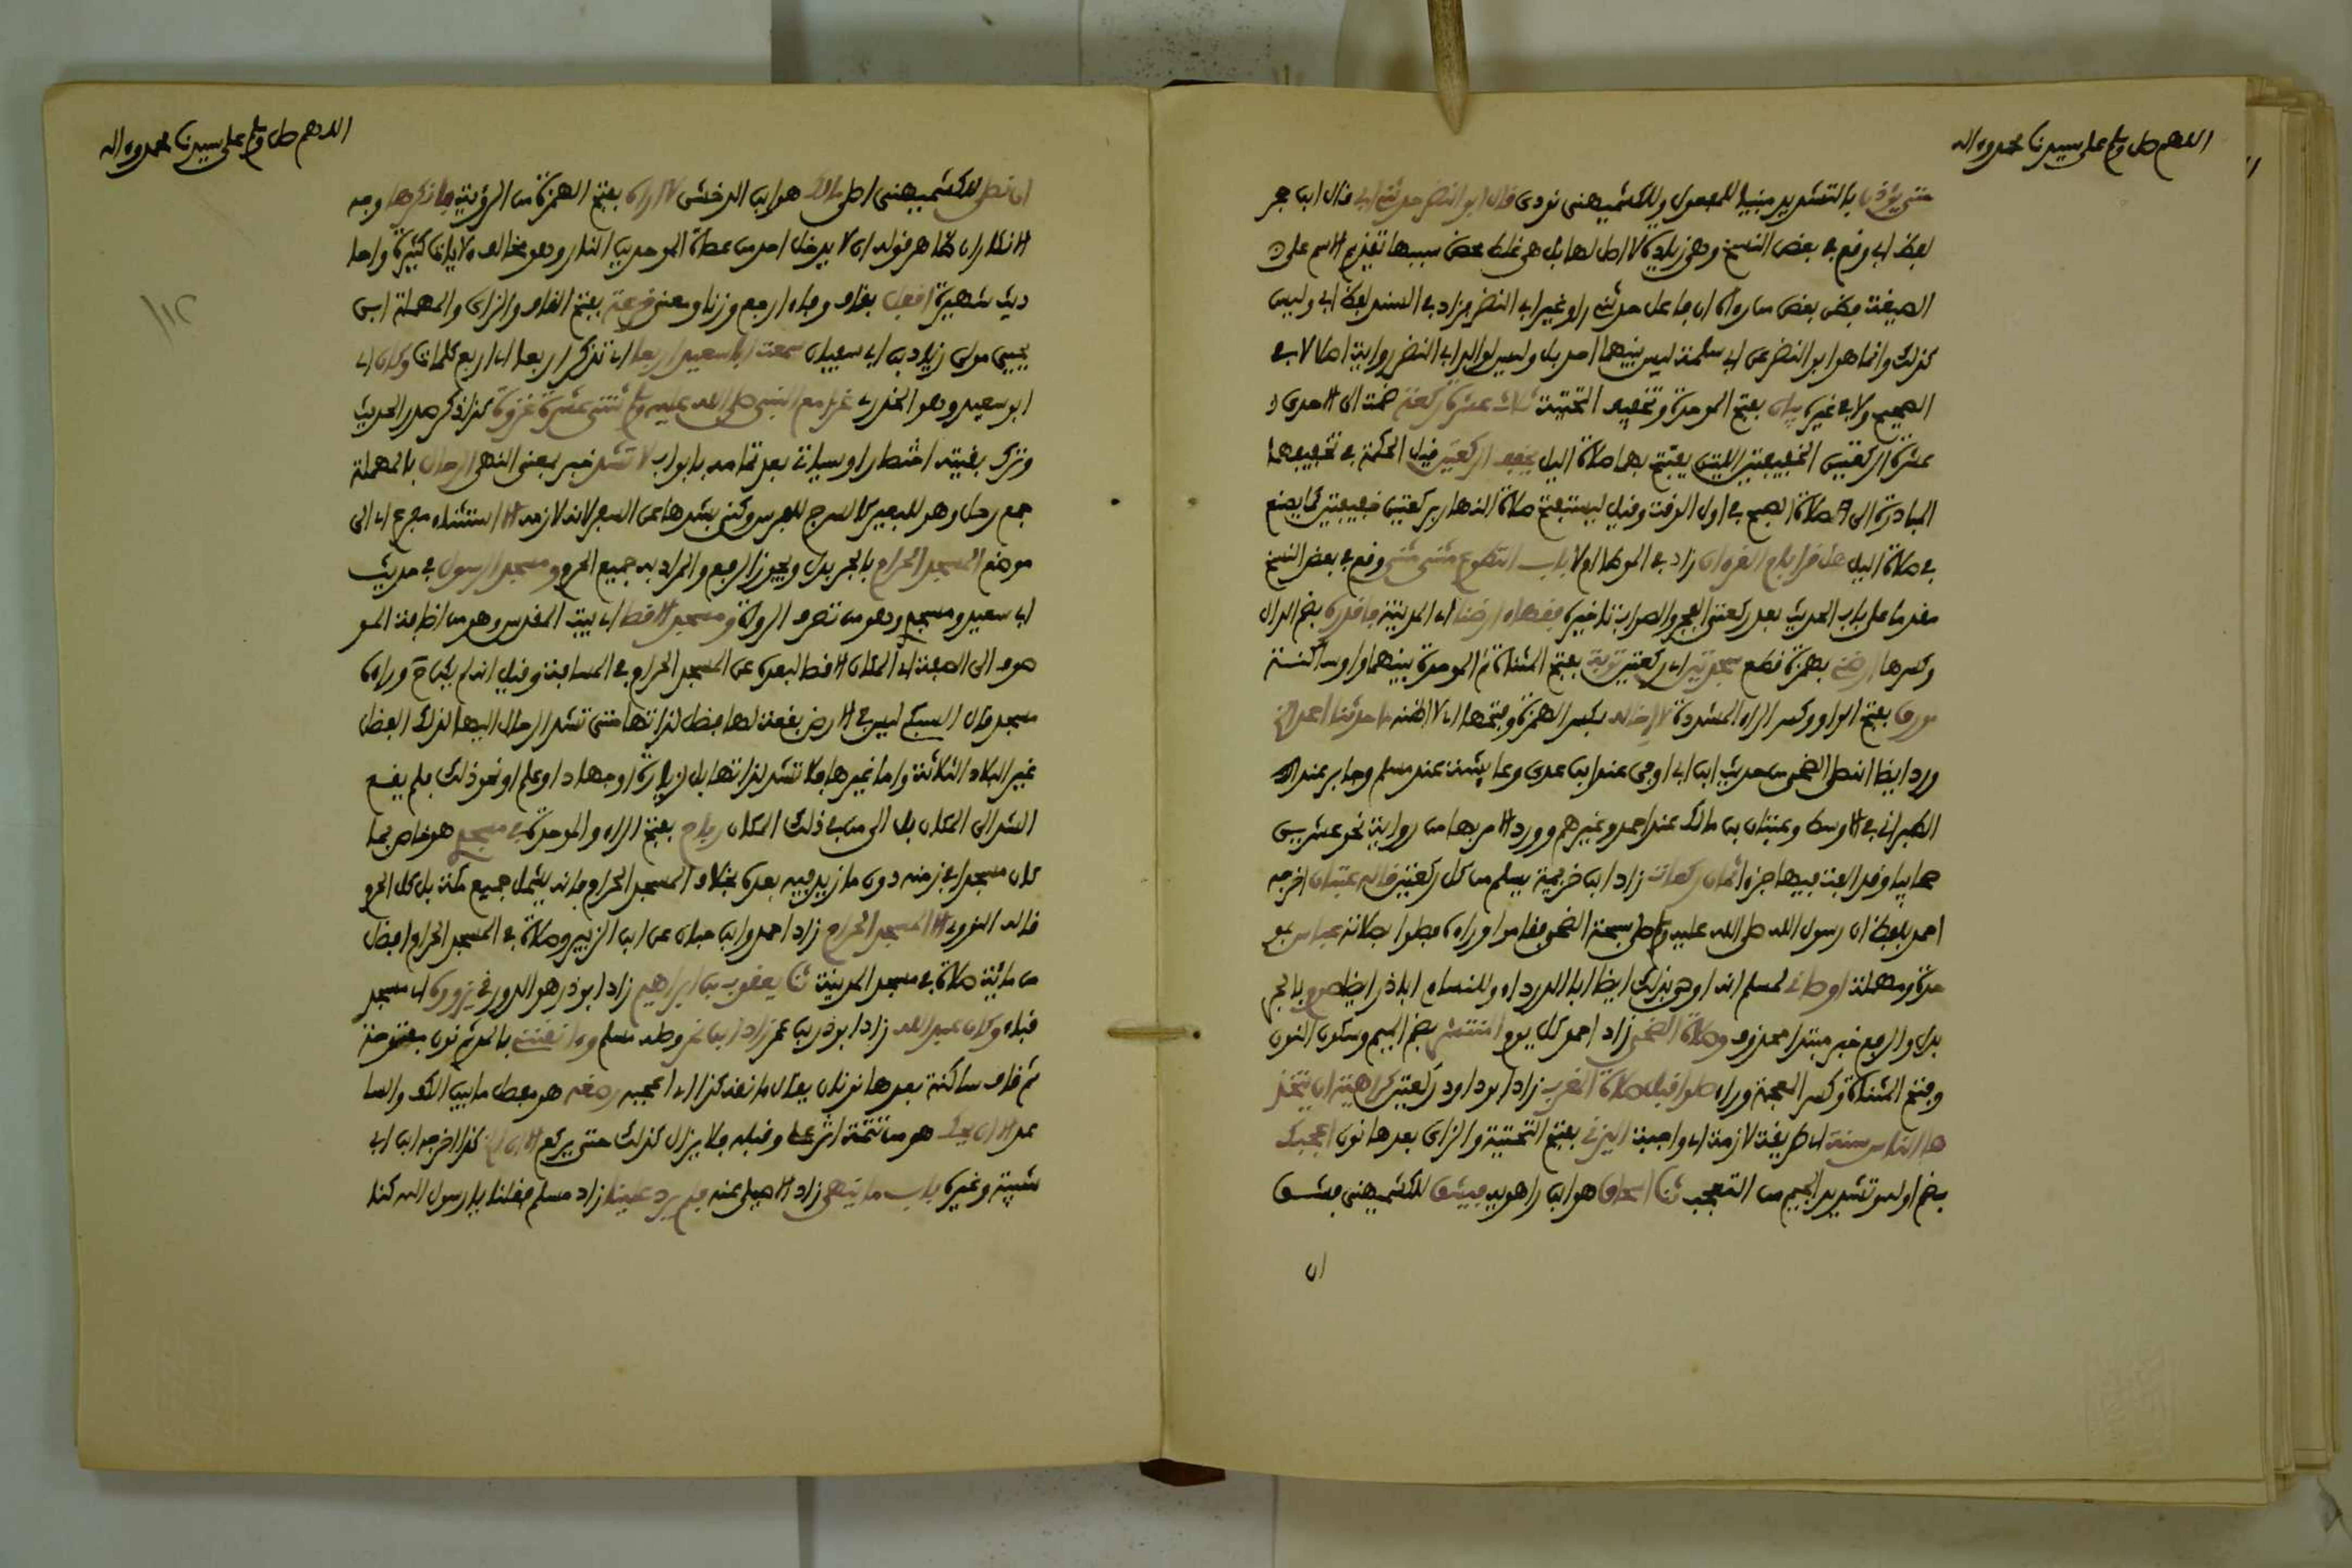 اللهم صل وسلم على سيدنا محمد وءاله
حتى يؤذن بالتشديد مبنيا للمفعول وللكشميهني نودى قال ابو النضر حدثني ابي قال ابن حجر
لفظ ابي وقع في بعض النسخ وهي زيادة لا اصل لها بل هي غلط محض سببها تقديم الاسم على
الصيغة فظن بعض من رءاه ان فاعل حدثني راو غير ابي النضر فزاد في السند لفظ ابي وليس
كذلك وانما هو ابو النضر عن ابي سلمة ليس بينهما احد بل وليس لوالد ابي النضر رواية اصلا لا في
الصحيح ولا في غيره بيان بفتح الموحدة وتخفيف التحتية ثلاث عشرة ركعة ضمت الى الاحدى
عشرة الركعتين الخفيفتين اللتين يفتتح بهما صلاة اليل يخفف الركعتين قيل الحكمة في تخفيفهما
المبادرة الى صلاة الصبح في اول الوقت وقيل ليستفتح صلاة النهار بركعتين خفيفتين كما يصنع
في صلاة اليل هل قرا بام القرءان زاد في الموطا ام لا باب التطوع مثنى مثنى وقع في بعض النسخ
مقدما على باب الحديث بعد ركعتي الفجر والصواب تاخيره فقهاء ارضنا اي المدينة فاقدره بضم الدال
وكسرها ارضني بهمزة قطع سجدتين اي ركعتين توبة بفتح المثناة ثم الموحدة بينهما واو ساكنة
مورق بفتح الواو وكسر الراء المشددة لا اخاله بكسر الهمزة وفتحها اي لا اظنه ما حدثنا احد الخ
ورد ايضا انه صلى الضحى من حديث ابن ابي اوفى عند ابن عدى وعايشة عند مسلم وجابر عند
الطبراني في الاوسط وعتبان بن مالك عند احمد وغيرهم وورد الامر بها من رواية نحو عشرين
صحابيا وقد الفت فيها جزءا ثمان ركعات زاد ابن خزيمة يسلم من كل ركعتين قاله عتبان اخرجه
احمد بلفظ ان رسول الله صلى الله عليه وسلم صلى سبحة الضحى فقاموا وراءه فصلوا بصلاته عباس بمو
حدة ومهملة اوصاني لمسلم انه اوصى بذلك ايضا ابا الدرداء وللنساءي ابا ذر ايضا صوم بالجر
بدل والرفع خبر مبتدا محذوف وصلاة الضحى زاد احمد كل يوم المنتشر بضم الميم وسكون النون
وفتح المثناة وكسر المعجمة وراء صلوا قبل صلاة المغرب زاد ابو داود ركعتين كراهية ان يتخذ
ها الناس سنة اي طريقة لازمة اي واجبة اليزني بفتح التحتية والزاى بعدها نون اعجبك
بضم اوله وتشديد الجيم من التعجب ثنا اسحاق هو ابن راهويه فيشق للكشميهني فشق
ان
اللهم صل وسلم على سيدنا محمد وءاله
ان اصلي للكشميهني اصلي مالك هو ابن الدخشن لا اراه بفتح الهمزة من الرؤية فانكرها وجه
الانكار ان ظاهر قوله ان لا يدخل احد من عصاة الموحدين النار وهو مخالف ءلايات كثيرة واحا
ديث شهيرة اقفل بقاف وفاء ارجع وزنا ومعنى قزعة بفتح القاف والزاى والمهملة ابن
يحيى مولى زياد بن ابي سفيان سمعت ابا سعيد اربعا اي تذكر اربعا اي اربع كلمات وكان اي
ابو سعيد وهو الخدري غزا مع النبي صلى الله عليه وسلم ثنتى عشرة غزوة كذا ذكر صدر الحديث
وترك بقيته اختصارا وسياتي بعد تمامه بابواب لا تشد خبر بمعنى النهى الرحال بالمهملة
جمع رحل وهو للبعير كالسرج للفرس وكنى بشدها عن السفر لانه لازمه الا استثناء مفرغ اي الى
موضع المسجد الحرام بالجر بدل ويجوز الرفع والمراد به جميع الحرم ومسجد الرسول في حديث
ابي سعيد ومسجدى وهو من تصرف الرواة ومسجد الاقصا اي بيت المقدس وهو من اضافة المو
صوف الى الصفة اي المكان الاقصا لبعده عن المسجد الحرام في المسافة وقيل انه لم يكن ح وراءه
مسجد قال السبكي ليس في الارض بقعة لها فضل لذاتها حتى تشد الرحال اليها لذلك الفضل
غير البلاد الثلاثة واما غيرها فلا تشد لذاتها بل لزيارة او جهاد او علم او نحو ذلك فلم يقع
الشد الى المكان بل الى من في ذلك المكان رباح بفتح الراء والموحدة في مسجدى هو خاص بما
كان مسجدا في زمنه دون ما زيد فيه بعده بخلاف المسجد الحرام فانه يشمل جميع مكة بل كل الحرم
قاله النووي الا المسجد الحرام زاد احمد وابن حبان عن ابن الزبير وصلاة في المسجد الحرام افضل
من مائة صلاة في مسجد المدينة ثنا يعقوب بن ابراهيم زاد ابو ذر هو الدورقي يزوره اي مسجد
قباء وكان عبد الله زاد ابو ذر بن عمر وصله مسلم وءانقنني بالمد ثم نون مفتوحة
ثم قاف ساكنة بعدها نونان يقال ءانقه كذا اي اعجبه رصغه هو مفصل ما بين الكف والسا
عد الا ان يحك هو من تتمة اثر على وقبله فلا يزال كذلك حتى يركع الا ان الخ كذا اخرجه ابن ابي
شيبة وغيره باب ما ينهى زاد الاصيلي عنه فلم يرد علينا زاد مسلم فقلنا يا رسول الله كنا